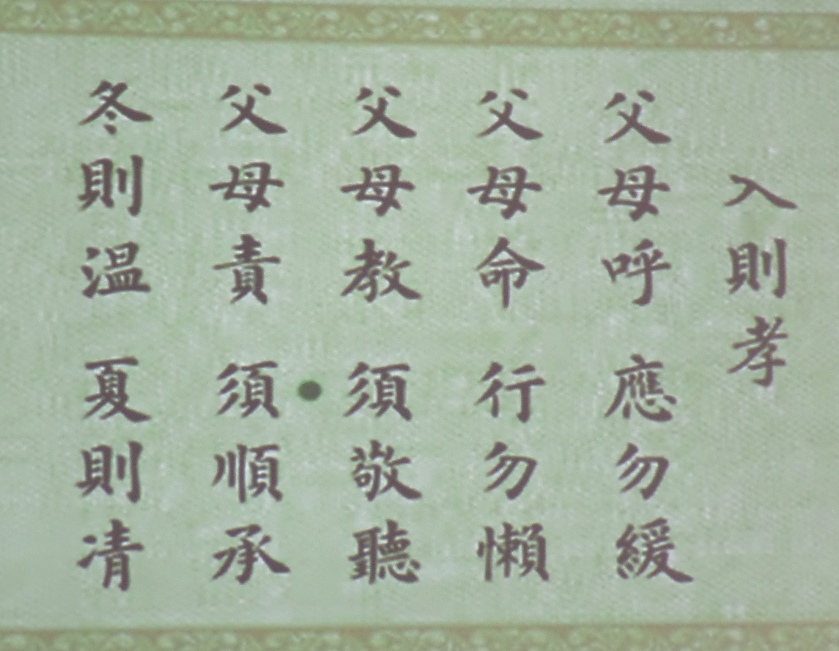 入則孝
父母呼 應勿緩
父母命 行勿懶
父母教 須敬聽
父母責 須順承
冬則温 夏則凊